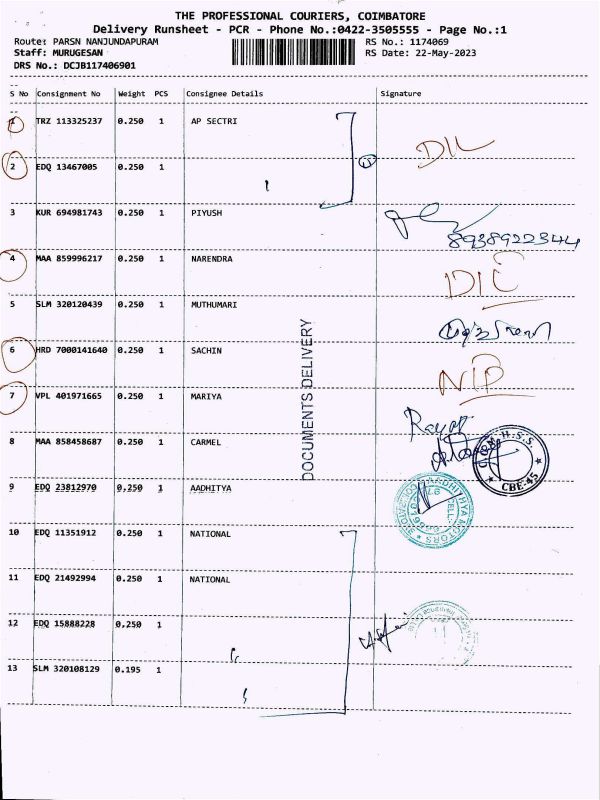 THE PROFESSIONAL COURIERS, COIMBATORE
Delivery Runsheet - PCR - Phone No.:0422-3505555 - Page No.:1
Route: PARSN NANJUNDAPURAM RS No.: 1174069
Staff: MURUGESAN RS Date: 22-May-2023
DRS No.: DCJB117406901
S No Consignment No Weight PCS Consignee Details Signature
1 TRZ 113325237 0.250 1 AP SECTRI
DIL
2 EDQ 13467005 0.250 1
3 KUR 694981743 0.250 1 PIYUSH
8938922344
4 MAA 859996217 0.250 1 NARENDRA
DIL
5 SLM 320120439 0.250 1 MUTHUMARI
6 HRD 7000141640 0.250 1 SACHIN
NIP
7 VPL 401971665 0.250 1 MARIYA
8 MAA 858458687 0.250 1 CARMEL
H.S.S.
CBE-45
9 EDQ 23812970 0.250 1 AADHITYA
AADHITHYA MOTORS
10 EDQ 11351912 0.250 1 NATIONAL
11 EDQ 21492994 0.250 1 NATIONAL
12 EDQ 15888228 0.250 1
13 SLM 320108129 0.195 1
DOCUMENTS DELIVERY